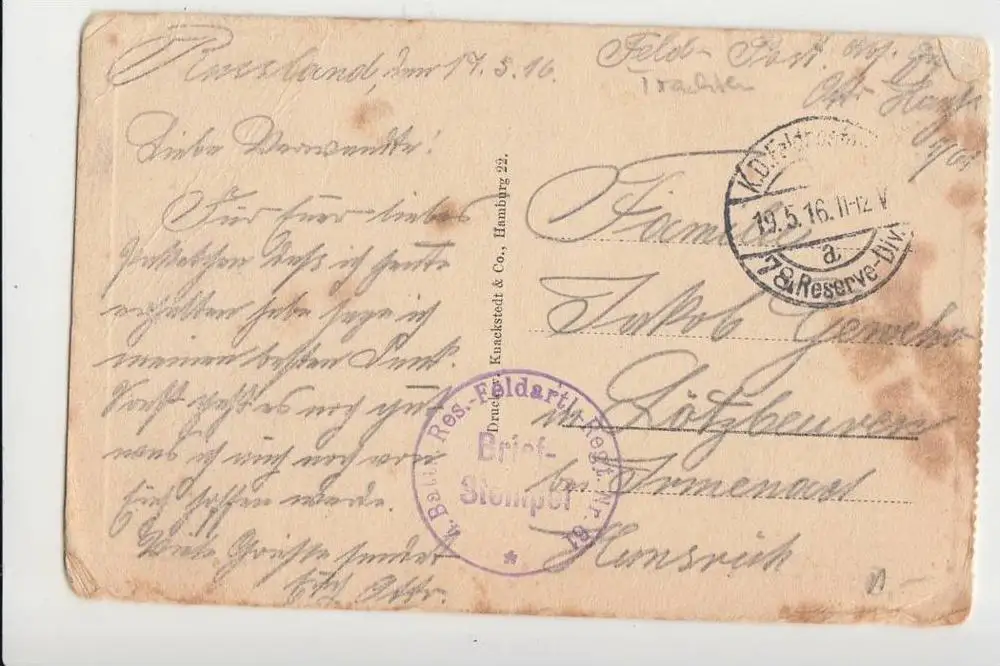 Russland, den 17.5.16.
Liebe Verwandte!
Für Euer liebes
Paketchen daß ich heute
erhalten habe sage ich
meinen besten Dank.
Sonst geht es noch gut
was ich auch noch von
Euch hoffen werde.
Viele Grüße sendet
Otto.
Feld-Post.
Trachten
Otto
K.D. Feldpost
19.5.16. 11-12 V
a.
78. Reserve-Div.
Familie
Jakob Gewehr
in Lötzbeuren
bei Irmenach
Hunsrück
Knackstedt & Co., Hamburg 22.
Res.-Feldart. Regt. Nr. 61
Brief-
Stempel